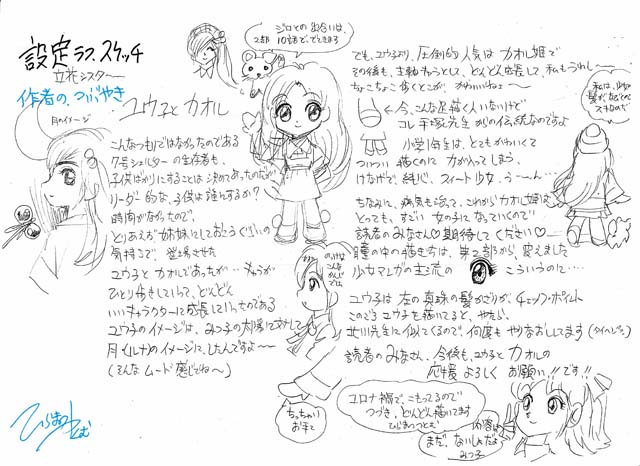 設定ラフ.スケッチ
立花シスター〜
作者の、つぶやき
ユウ子とカオル
月のイメージ
こんなつもりではなかったのである
7号シェルターの生存者も、
子供ばかりにすることは決めてあったのだが
リーダー的な、子供は誰にするか?
時間がなかったので、
とりあえず姉妹にしておこうぐらいの
気持ちで、登場させた
ユウ子とカオルであったが…
ひとり歩きしていって、どんどん
いいキャラクターに成長していったのである
ユウ子のイメージは、みつ子の太陽に対して
月(ルナ)のイメージに、したんですよ〜
(そんなムード感じてね〜)
ジロとの出会いは、
2部10話で、でてきまよ
でも、ユウ子より、圧倒的人気はカオル姫で
その後も、主軸キャラとして、どんどん成長して、私もうれしー
ちょこちょこ歩くとこが、かわいいねェー
←今、こんな足描く人いないけど
コレ手塚先生からの伝統なのですよ
小学1年生は、とてもかわいくて
ついつい描くのに力が入ってしまう、
けなげで、純心、スイート少女、う〜ん…
ちなみに、病気も治って、これからカオル姫は
とっても、すごい女の子になっていくので
読者のみなさん♡期待してください♡
瞳の中の描き方は、第2部から、変えました
少女マンガの主流の
こういうのに…
ユウ子は左の真珠の髪かざりが、チェックポイント
このごろユウ子を描いてると、やたら、
北川先生に似てくるので、何度もやりなおしてます(タイヘンだ)
読者のみなさん、今後も、ユウ子とカオルの
応援よろしくお願い!!です!!
のけはこんなかんじでは
ちっちゃい
お手て
コロナ禍で、こもってるので
つづき、どんどん描いてます
ひらまつつとむ
内容は
まだ、ないしょだよ
みつ子
ひらまつつとむ